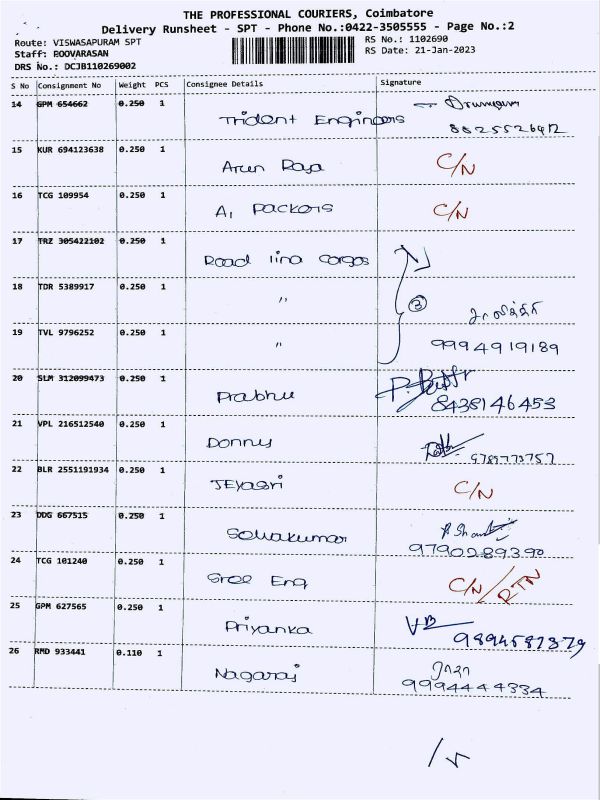 THE PROFESSIONAL COURIERS, Coimbatore
Delivery Runsheet - SPT - Phone No.:0422-3505555 - Page No.:2
Route: VISWASAPURAM SPT
Staff: ROOVARASAN
DRS No.: DCJB110269002
RS No.: 1102690
RS Date: 21-Jan-2023
S No Consignment No Weight PCS Consignee Details Signature
14 GPM 654662 0.250 1 Trident Engineers
15 KUR 694123638 0.250 1 Arun Raja C/N
16 TCG 109954 0.250 1 A1 Packers C/N
17 TRZ 305422102 0.250 1 Road line cargos
18 TDR 5389917 0.250 1 " 3
19 TVL 9796252 0.250 1 " 9994919189
20 SLM 312099473 0.250 1 Prabhu 8438146453
21 VPL 216512540 0.250 1 Donny 9789773757
22 BLR 2551191934 0.250 1 JEyasri C/N
23 DDG 667515 0.250 1 Selvakumar 9790289390
24 TCG 101240 0.250 1 Sree Eng C/N/RTN
25 GPM 627565 0.250 1 Priyanka VB 9894587379
26 RMD 933441 0.110 1 Nagaraj ராஜா 9994444334